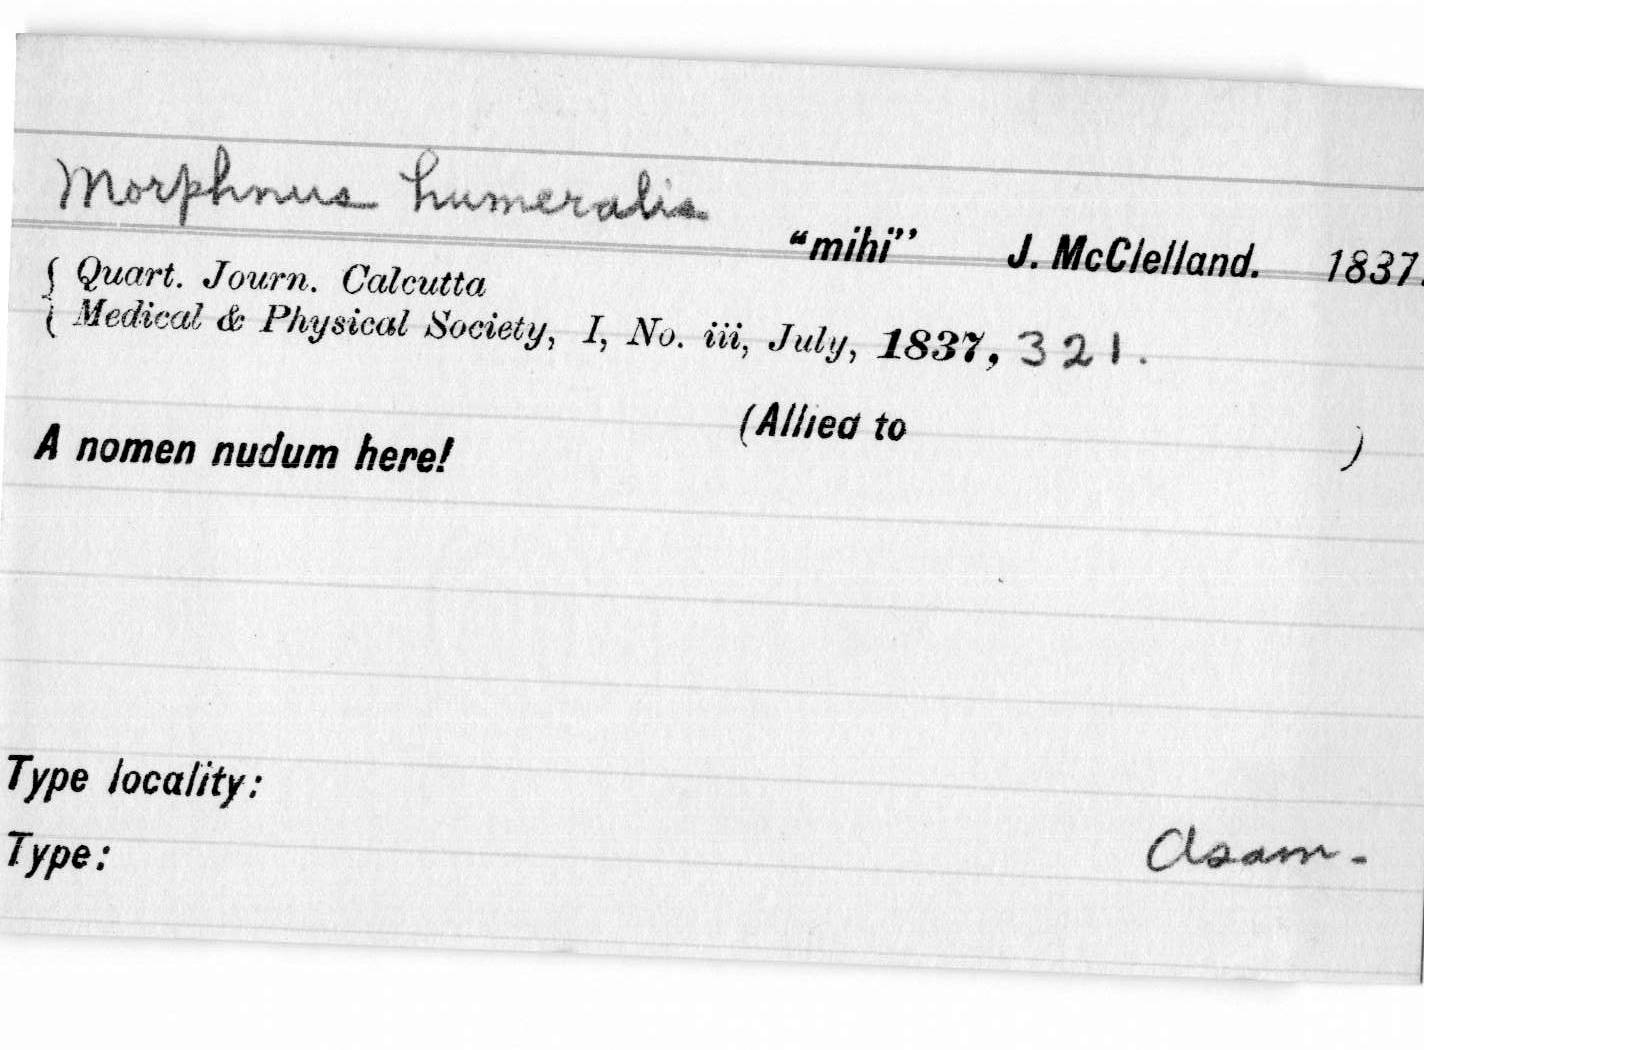 Morphnus humeralis
"mihi" J. McClelland. 1837.
{ Quart. Journ. Calcutta
{ Medical & Physical Society, I, No. iii, July, 1837, 321.
(Allied to )
A nomen nudum here!
Type locality:
Type: Asam.